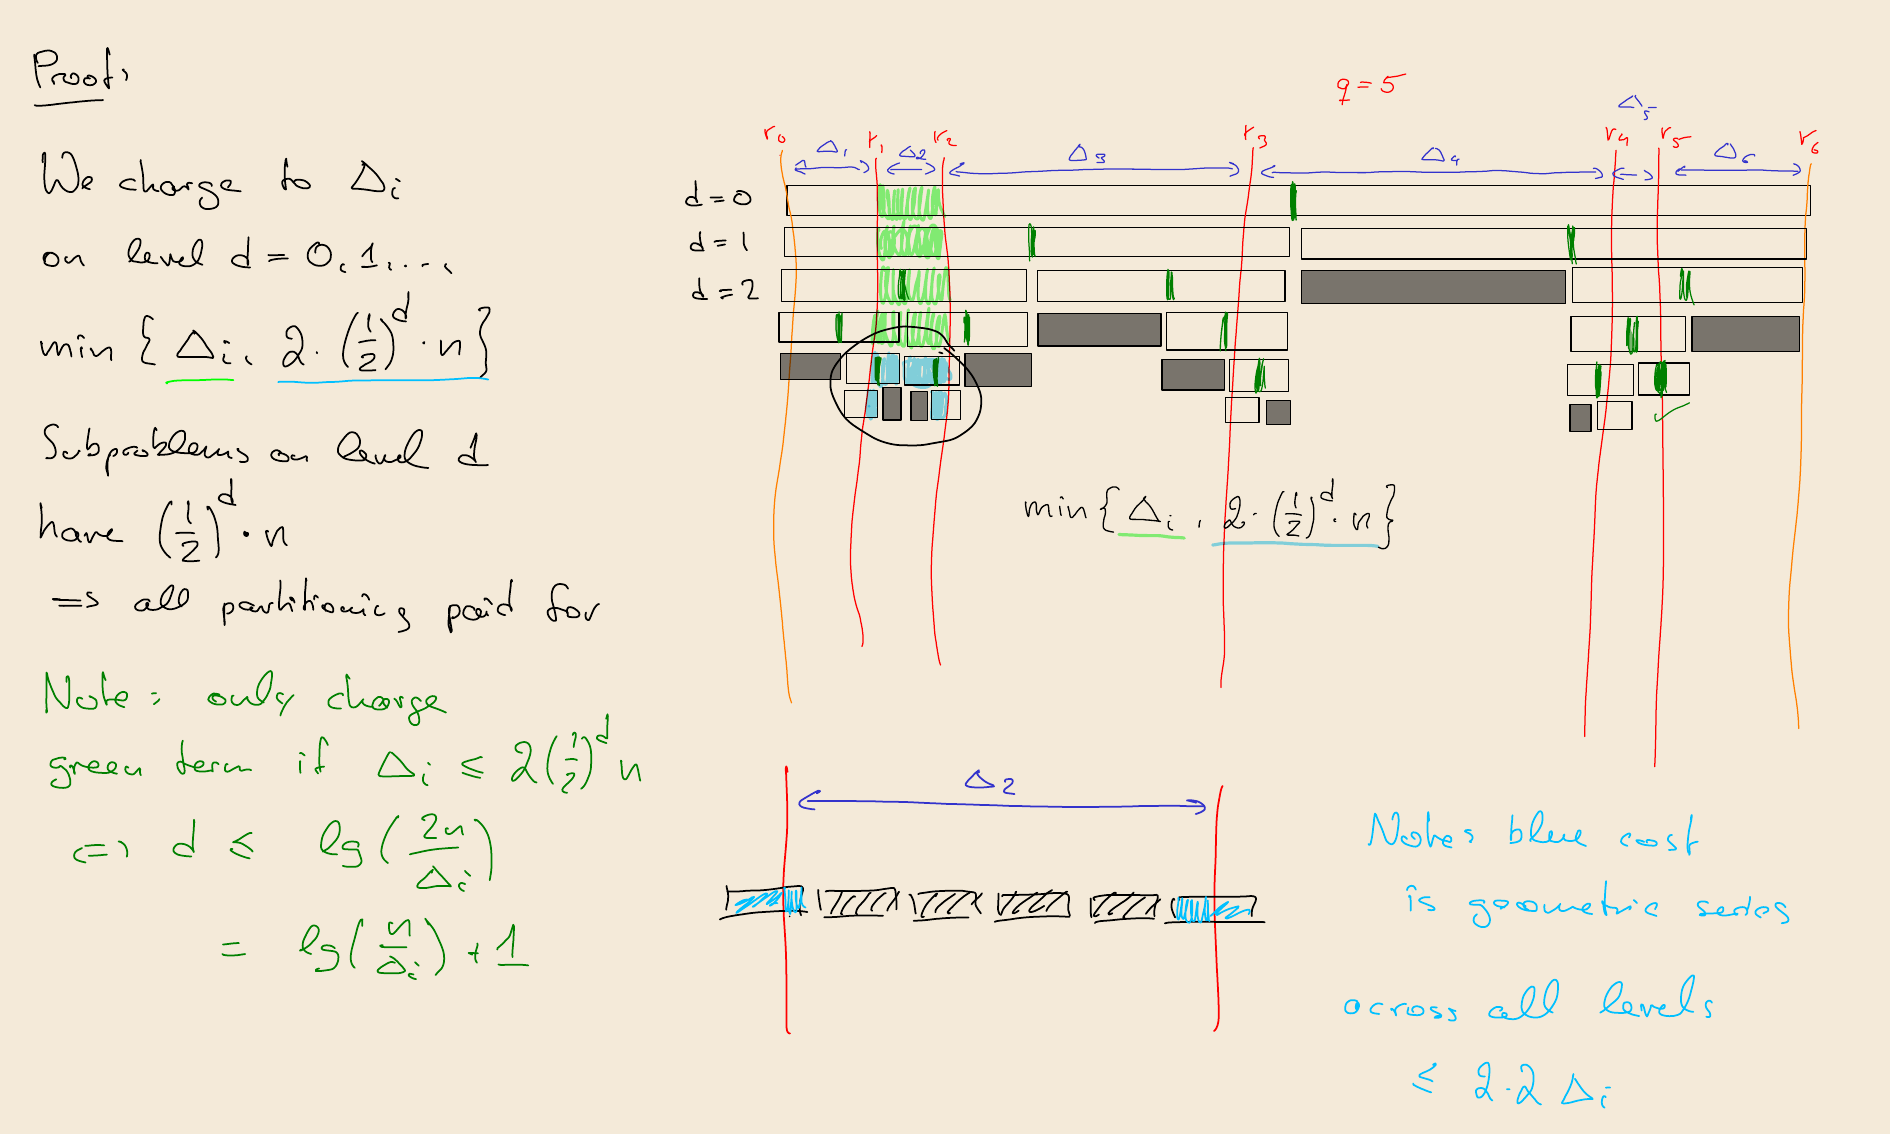 Proof:
We charge to Δi
on level d = 0, 1, ...,
min { Δi, 2 · (1/2)^d · n }
Subproblems on level d
have (1/2)^d · n
=> all partitioning paid for
Note: only charge
green term if Δi ≤ 2(1/2)^d n
<=> d ≤ lg(2n/Δi)
= lg(n/Δi) + 1
q = 5
Δ5
r0 r1 r2 r3 r4 r5 r6
Δ1 Δ2 Δ3 Δ4 Δ6
d = 0
d = 1
d = 2
min { Δi, 2 · (1/2)^d · n }
Δ2
Note: blue cost
is geometric series
across all levels
≤ 2·2 Δi